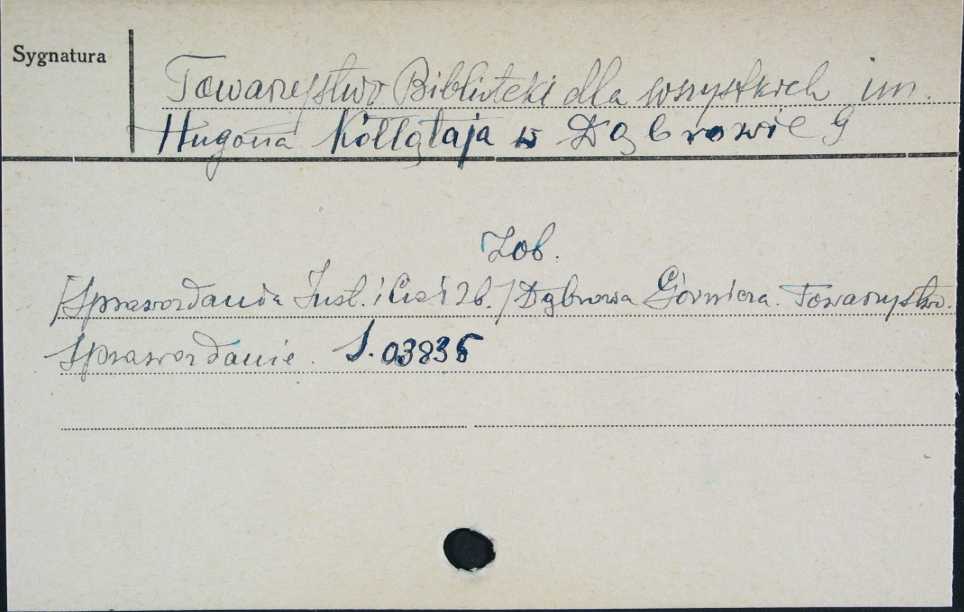 Sygnatura
Towarzystwo Biblioteki dla wszystkich im.
Hugona Kołłątaja w Dąbrowie G
Zob.
[Sprawozdania Inst. i
Dąbrowa Górnicza. Towarzystwo.
Sprawozdanie. S. 03835